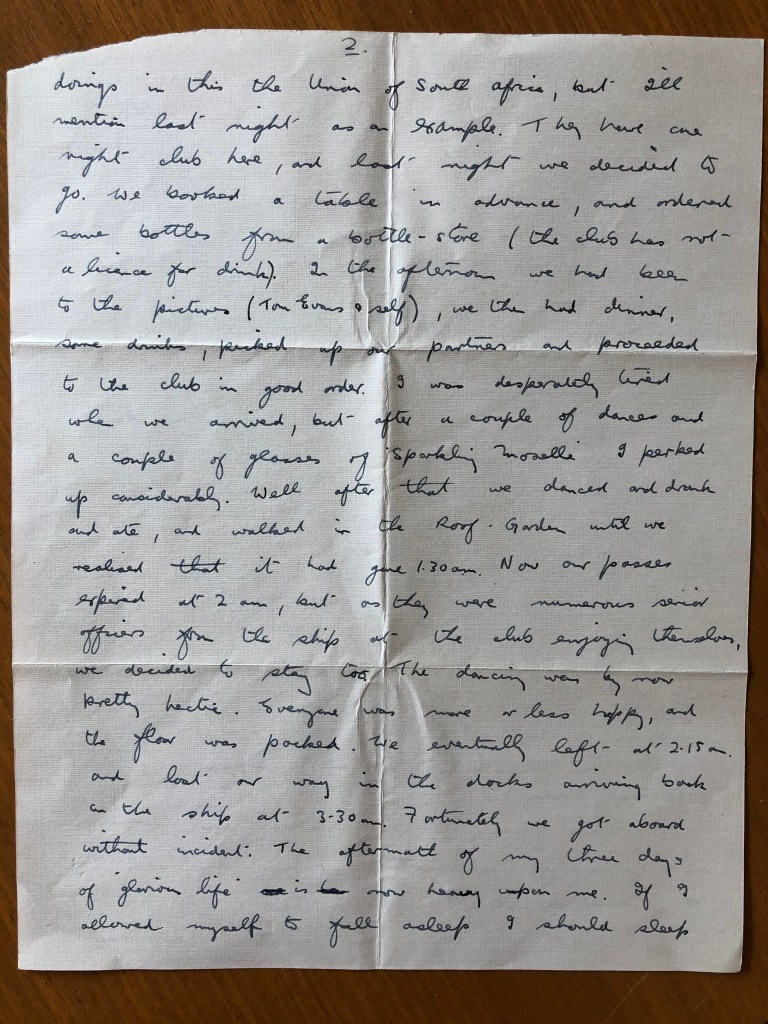 2.
doings in this the Union of South Africa, but I'll
mention last night as an example. They have one
night club here, and last night we decided to
go. We booked a table in advance, and ordered
some bottles from a bottle-store (the club has not
a licence for drink). In the afternoon we had been
to the pictures (Tom Evans & self), we then had dinner,
some drinks, picked up our partners and proceeded
to the club in good order. I was desperately tired
when we arrived, but after a couple of dances and
a couple of glasses of 'Sparkling Moselle' I perked
up considerably. Well after that we danced and drank
and ate, and walked in the Roof-Garden until we
realised that it had gone 1.30 am. Now our passes
expired at 2 am, but as they were numerous senior
officers from the ship at the club enjoying themselves,
we decided to stay too. The dancing was by now
pretty hectic. Everyone was more or less happy, and
the floor was packed. We eventually left at 2.15 am.
and lost our way in the docks arriving back
on the ship at 3-30 am. Fortunately we got aboard
without incident. The aftermath of my three days
of 'glorious life' is now heavy upon me. If I
allowed myself to fall asleep I should sleep